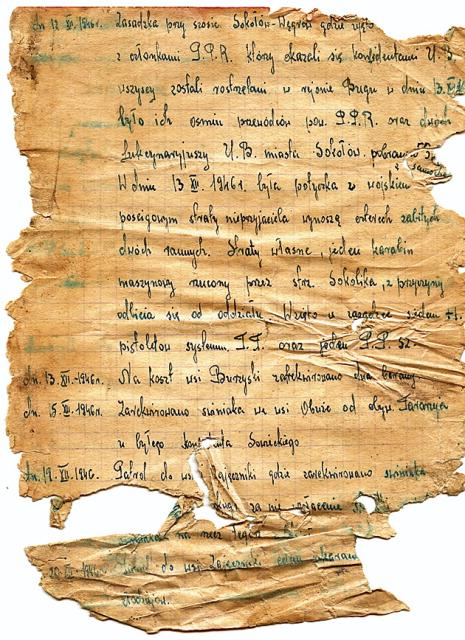 dn 12 XII. 1946r. Zasadzka przy szosie Sokołów-Węgrów gdzie ujęto
z członkami P.P.R. który okazali się konfidentami U.B.
wszyscy zostali rozstrzelani w rejonie Bugu w dniu 13.XII
było ich ośmiu przewódców pow. P.P.R. oraz dwóch
funkcynaryjuszy U.B. miasta Sokołów. pobrano
W dniu 13 XII. 1946r. była potyczka z wojskiem
pościgowym straty nieprzyjaciela wynoszą czterech zabitych
dwóch rannych. Straty własne, jeden karabin
maszynowy rzucony przez strz. Sokolika, z przyczyny
odbicia się od oddziału. Wzięto w zasadzce siedem szt.
pistoletów systemu T.T. oraz jeden P.P. Sz.
dn. 13. XII. 1946r. Na koszt wsi Buzyski zarekwirowano dwa barany.
dn. 15. XII. 1946r. Zarekwirowano świniaka we wsi od obyw.
u byłego Sowieckiego
dn. 19. XII. 1946. Patrol do wsi gdzie zarekwirowano świniaka
za nie
na rzecz
do wsi